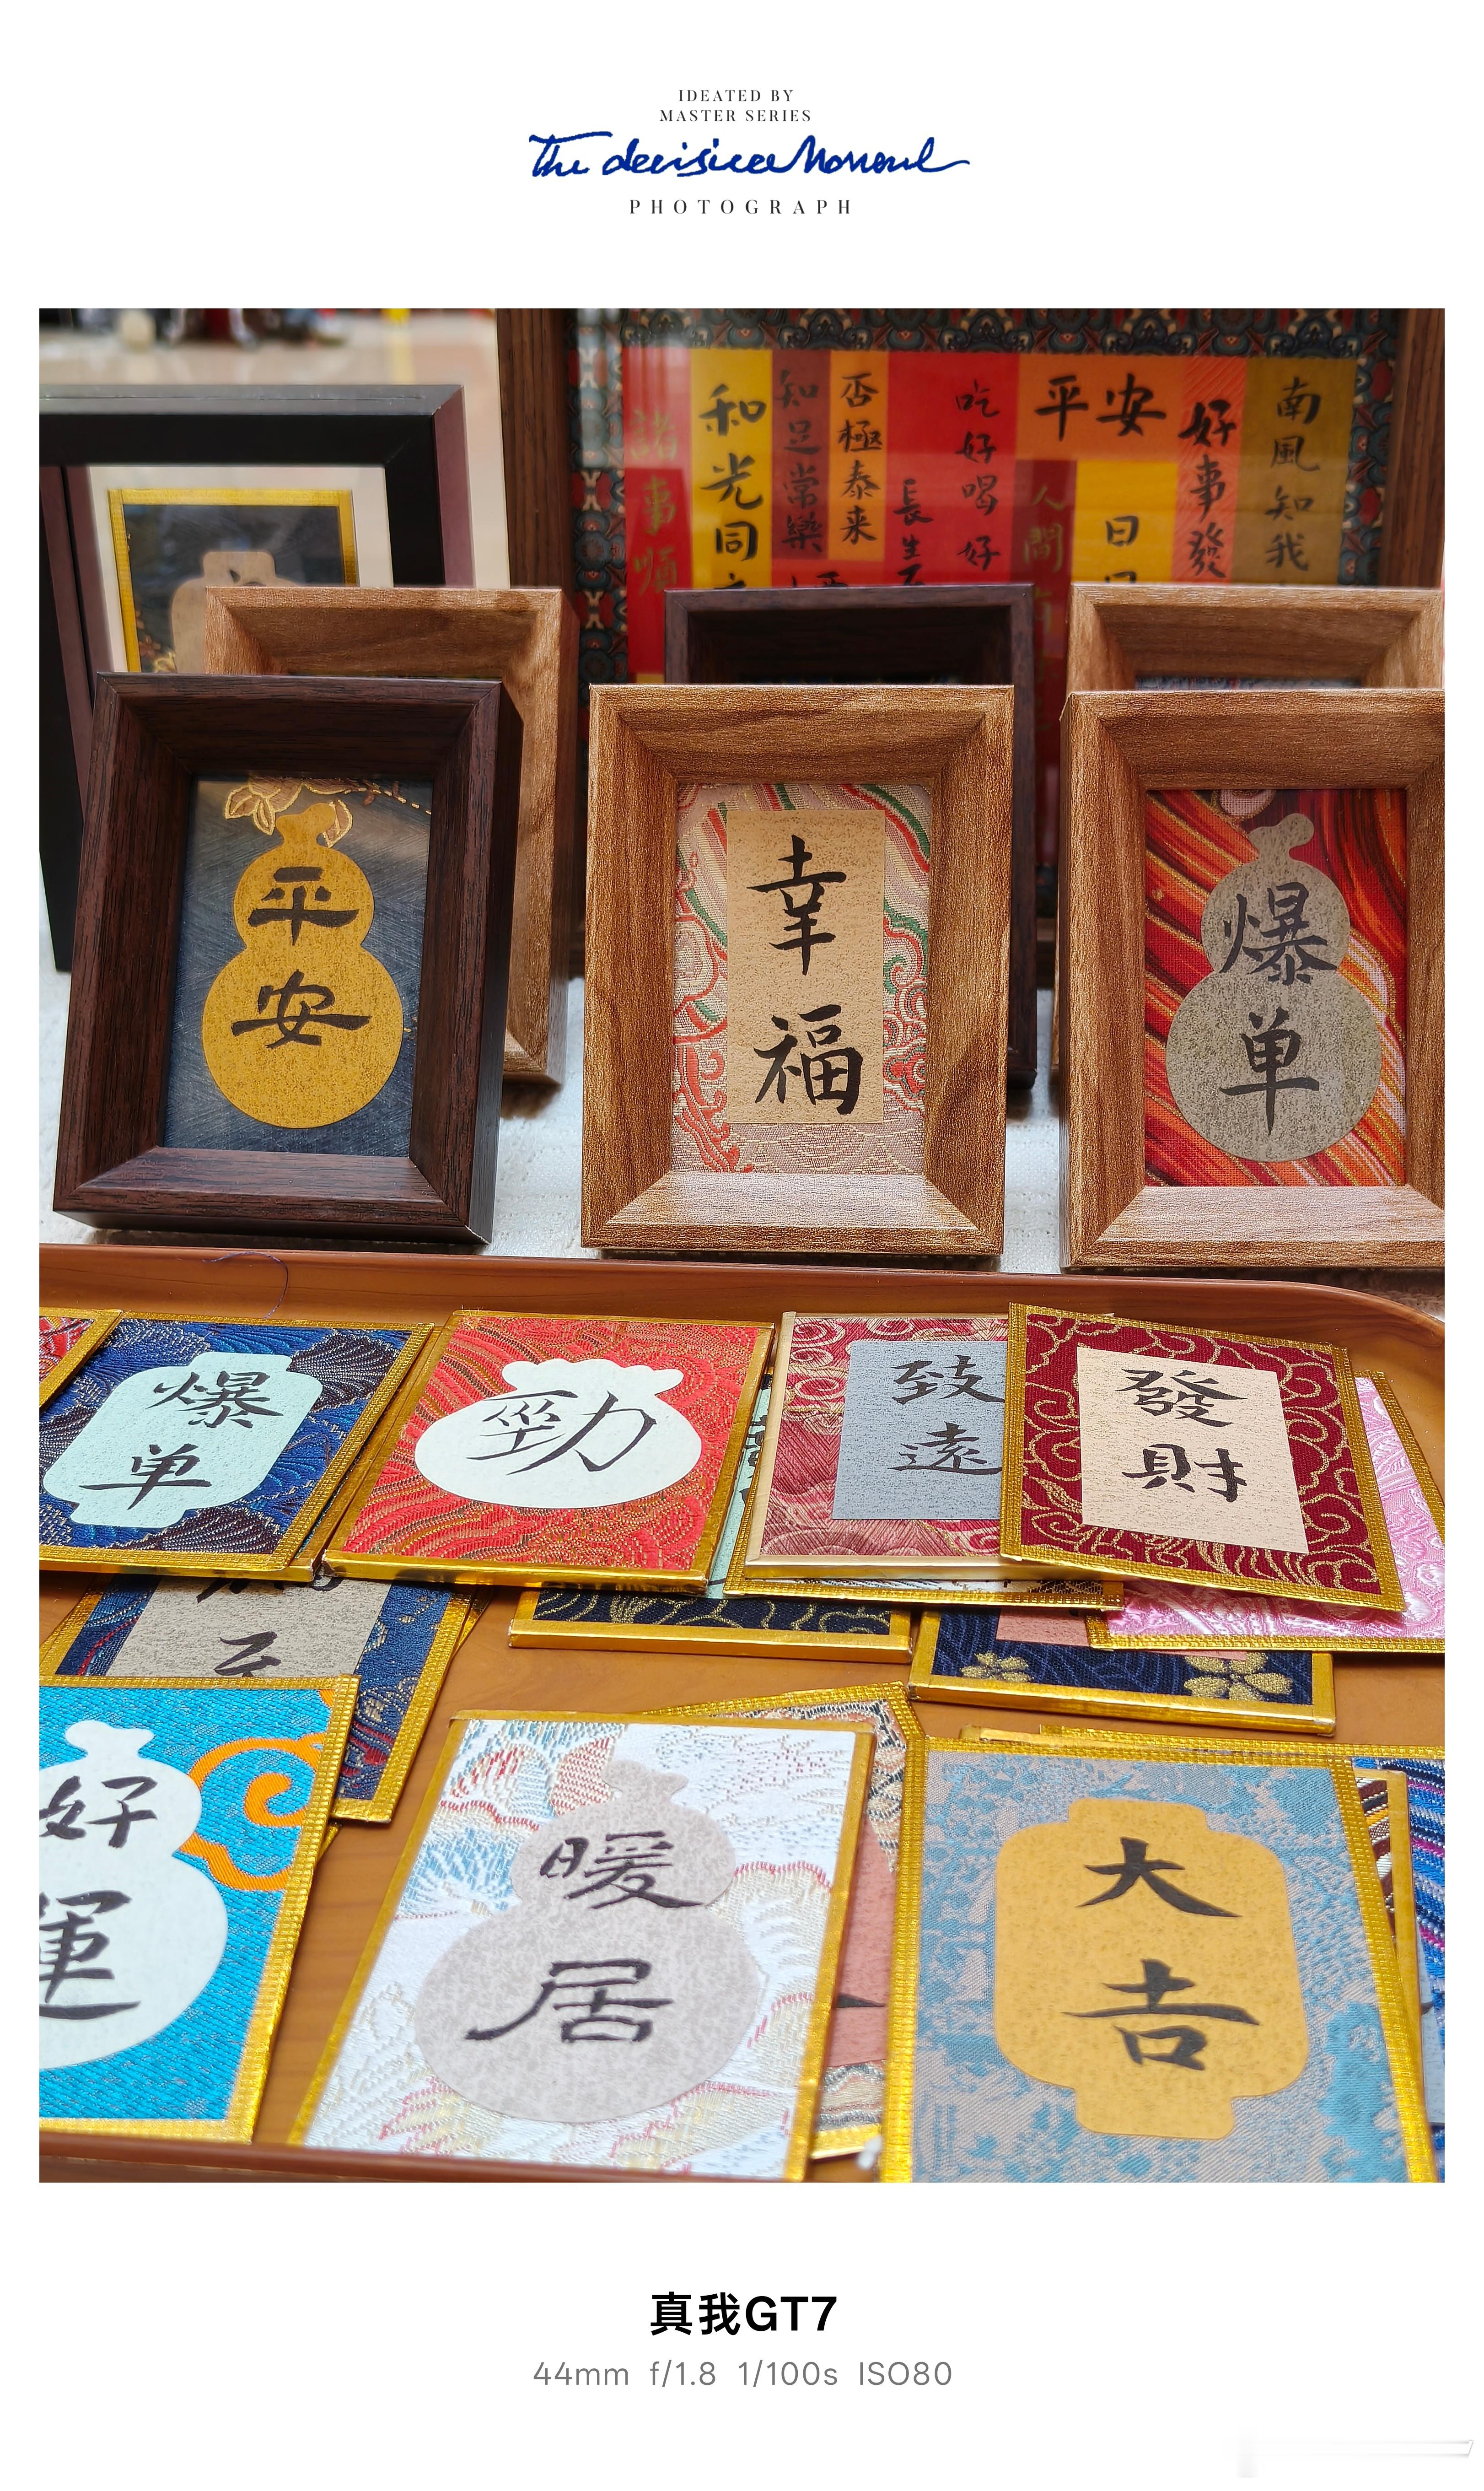 IDEATED BY
MASTER SERIES
The decisive Moment
PHOTOGRAPH
諸事順
和光同
知足常樂
否極泰来
長生
吃好喝好
平安
人間
日日
好事發
南風知我
平安
幸福
爆单
爆单
勁
致遠
發財
好運
暖居
大吉
真我GT7
44mm f/1.8 1/100s ISO80